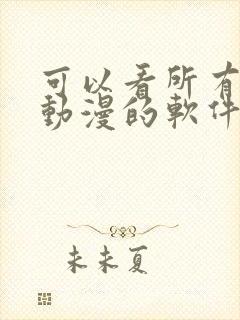 可以看所有
動漫的軟件
未未夏